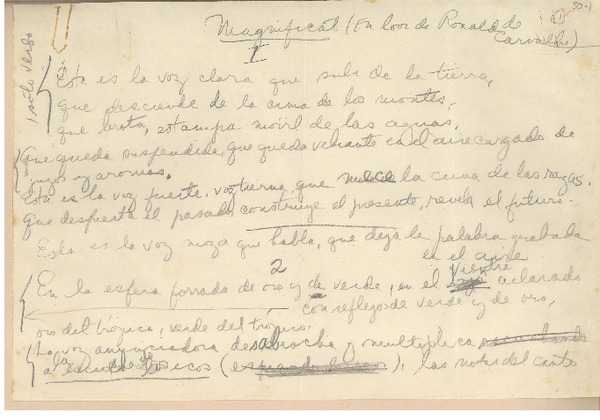 Magnificat (En loor de Ronald de
Carvalho)
I
1 solo verso
Esta es la voz clara que sube de la tierra,
que desciende de la cima de los montes,
que brota, estampa móvil de las aguas,
Que queda suspendida, que queda vibrante en el aire cargado de
jugos y aromas.
Esta es la voz fuerte, voz tierna, que mece la cuna de las razas.
Que despierta el pasado, construye el presente, revela el futuro.
Esta es la voz moza que habla, que deja la palabra grabada
en el aire
2
En la esfera forrada de oro y de verde, en el vientre aclarado
con reflejos de verde y de oro,
oro del trópico, verde del trópico,
La voz anunciadora desabrocha y multiplica
ecos ( ), las notas del canto